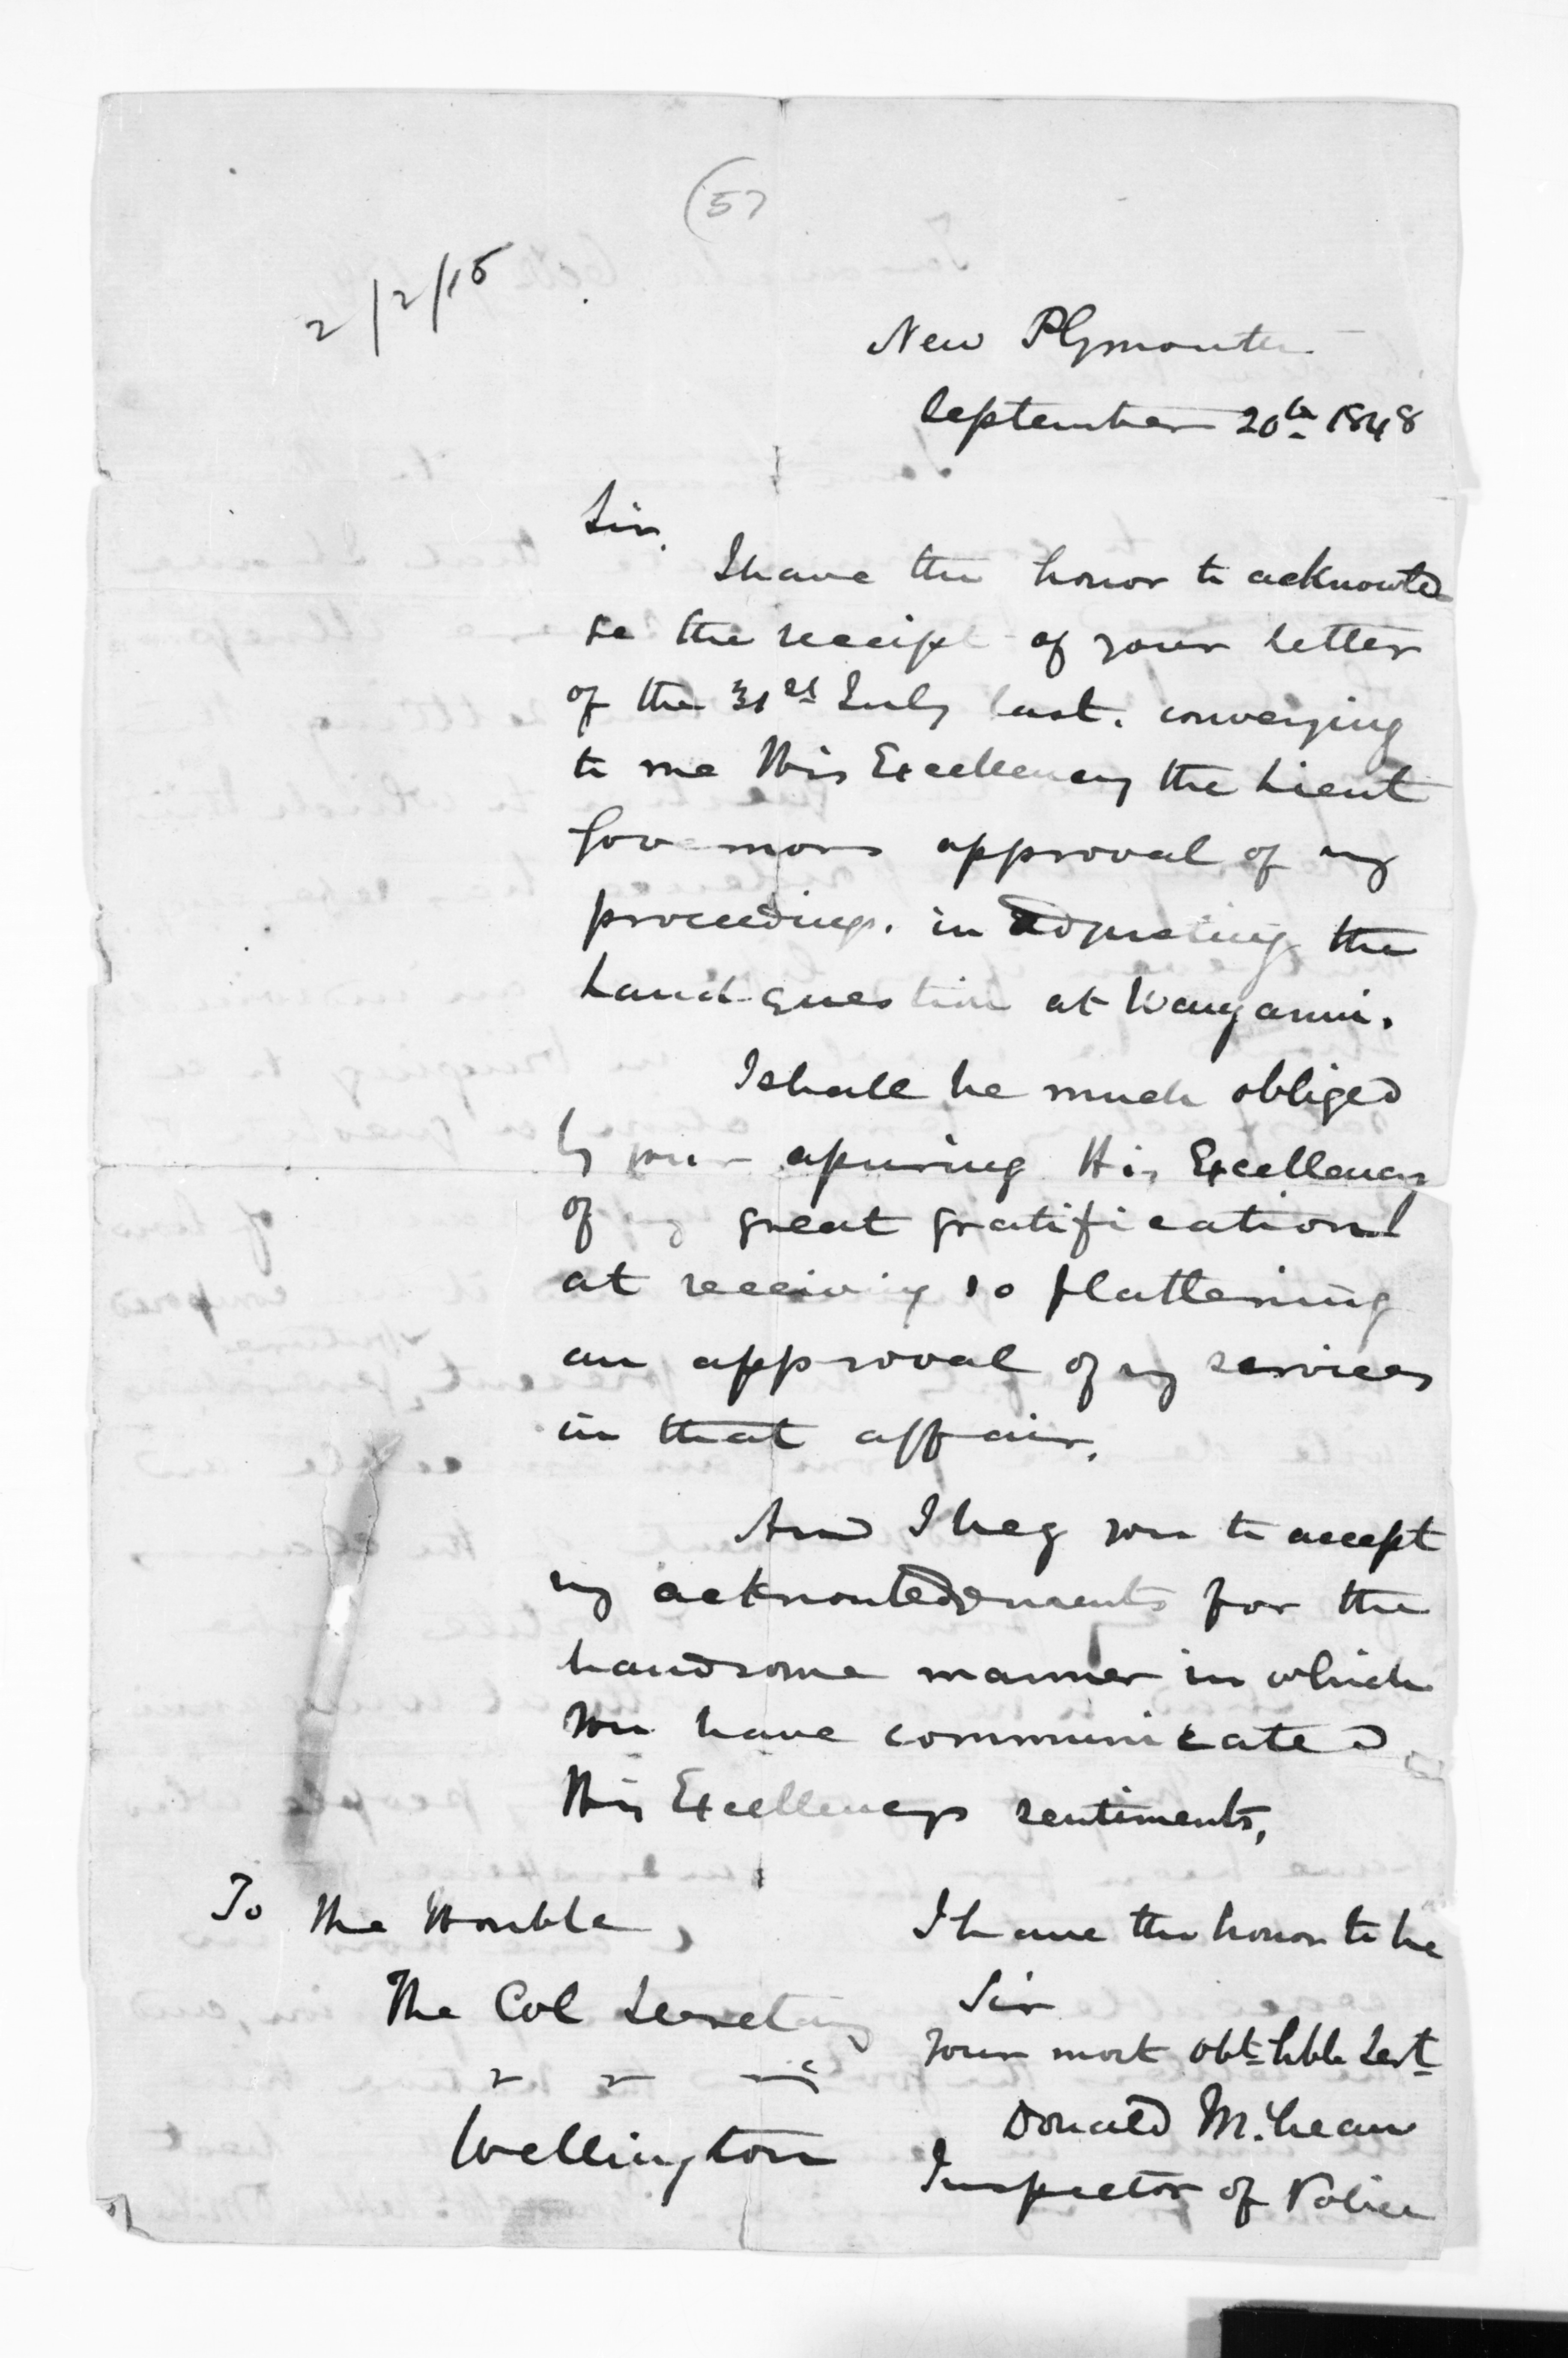 (57
2/2/15
New Plymouth
September 20th 1848
Sir,
I have the honor to acknowled
ge the receipt of your letter
of the 31st July last. conveying
to me His Excellency the Lieut
Governors approval of my
proceedings. in adjusting the
Land question at Wanganui.
I shall be much obliged
by your assuring His Excellency
of my great gratification
at receiving so flattering
an approval of my services
in that affair.
And I beg you to accept
my acknowledgements for the
handsome manner in which
you have communicated
His Excellencys sentiments,
To The Honble,
The Col Secretary
Wellington
I have the honor to be
Sir
your most obt hble Servt
Donald McLean
Inspector of Police